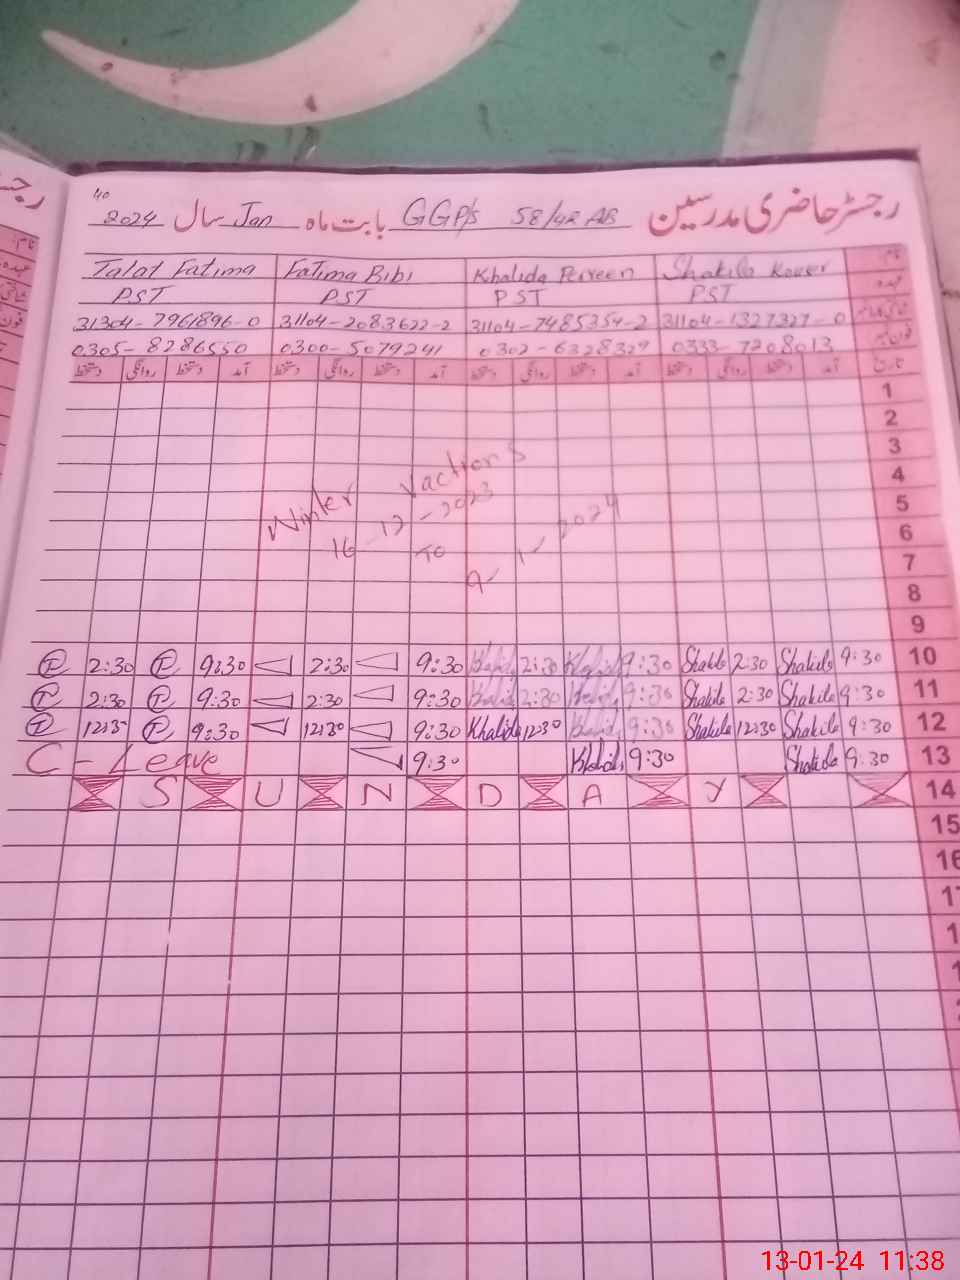 40
رجسٹر حاضری مدرسین GGP/s 58/4R AB بابت ماہ Jan سال 2024
Talat Fatima Fatima Bibi Khalida Perveen Shakila Kouser نام
PST PST PST PST عہدہ
31304-7961896-0 31104-2083622-2 31104-7485354-2 31104-1327327-0
0305-8286550 0300-5079241 0302-6328329 0333-7208013
دستخط روانگی دستخط آمد دستخط روانگی دستخط آمد دستخط روانگی دستخط آمد دستخط روانگی دستخط آمد تاریخ
1
2
3
4
5
6
7
8
9
Winter Vactions
16-12-2023
To
9-1-2024
2:30 9:30 2:30 9:30 Khalida 2:30 Khalida 9:30 Shakila 2:30 Shakila 9:30 10
2:30 9:30 2:30 9:30 Khalida 2:30 Khalida 9:30 Shakila 2:30 Shakila 9:30 11
12:30 9:30 12:30 9:30 Khalida 12:30 Khalida 9:30 Shakila 12:30 Shakila 9:30 12
C-Leave 9:30 Khalida 9:30 Shakila 9:30 13
S U N D A Y 14
15
16
13-01-24 11:38